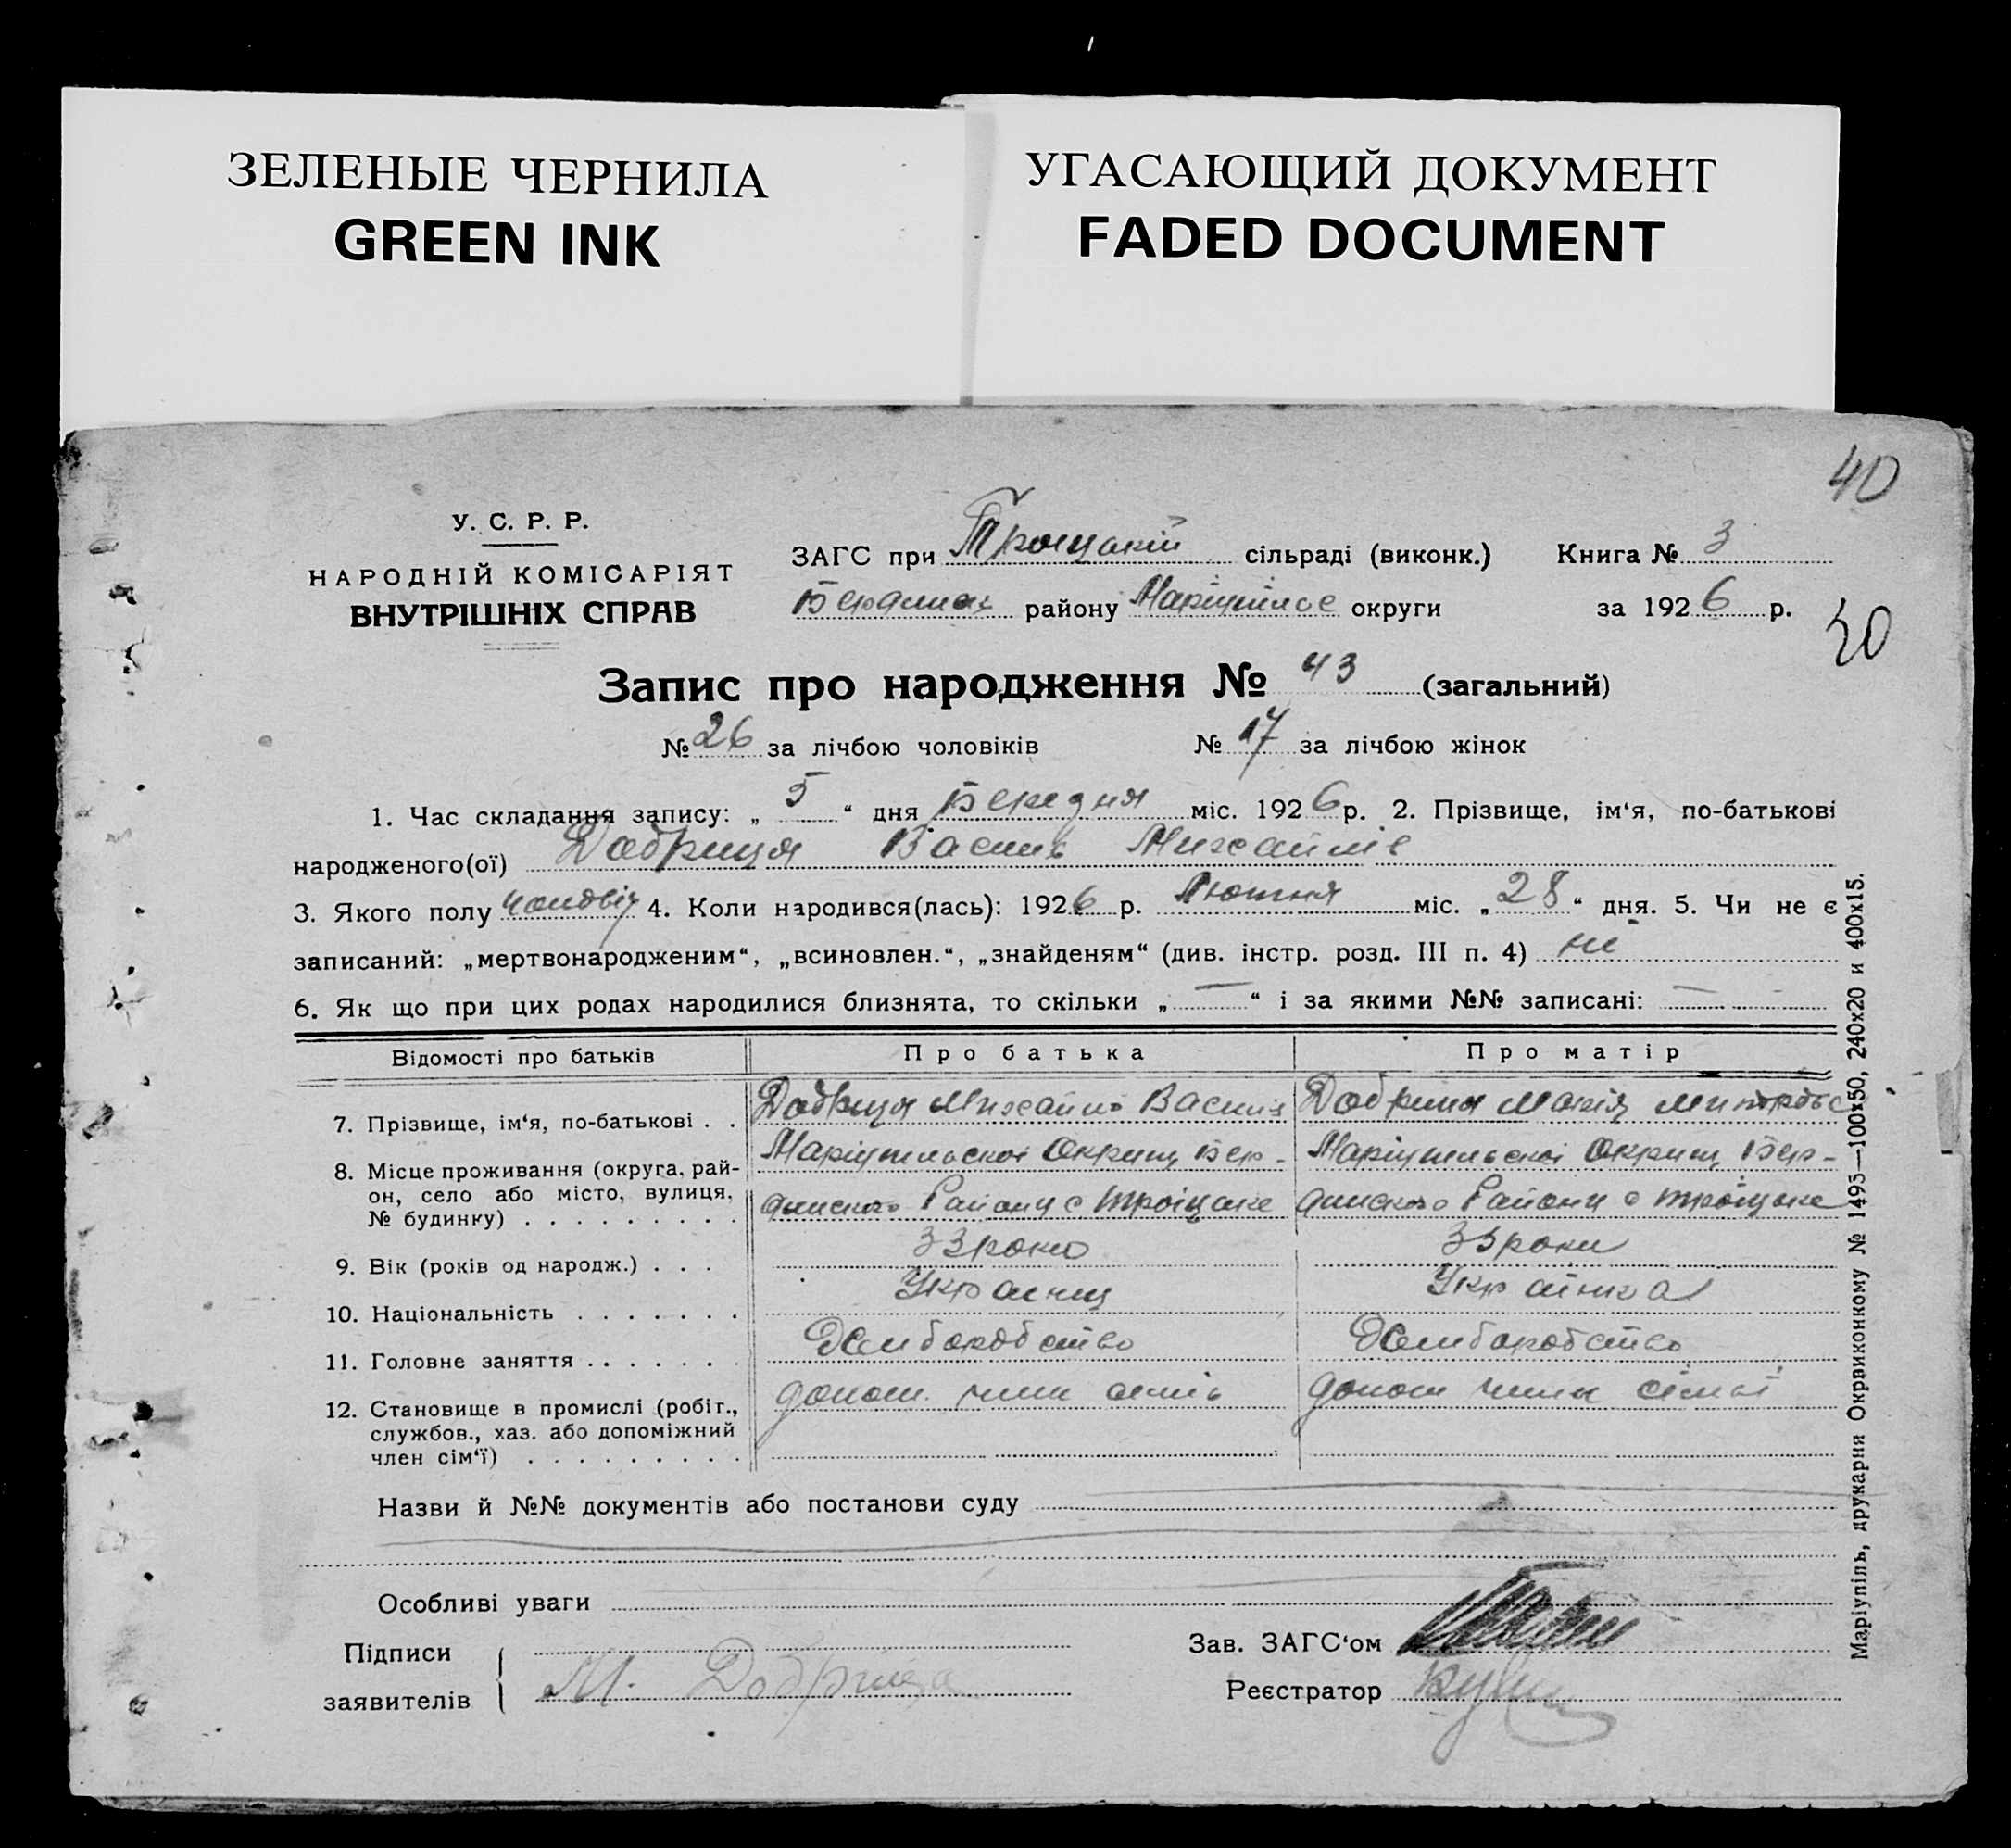 ЗЕЛЕНЫЕ ЧЕРНИЛА
GREEN INK
УГАСАЮЩИЙ ДОКУМЕНТ
FADED DOCUMENT
40
У. С. Р. Р.
НАРОДНІЙ КОМІСАРІЯТ
ВНУТРІШНІХ СПРАВ
ЗАГС при Троіцькій сільраді (виконк.) Книга № 3
району округи за 1926 р.
Запис про народження № 43 (загальний)
№ 26 за лічбою чоловіків № 17 за лічбою жінок
1. Час складання запису: „ 5 “ дня міс. 1926 р. 2. Прізвище, ім‘я, по-батькові
народженого(ої) Добриця Василь Михайлів
3. Якого полу 4. Коли народився(лась): 1926 р. Лютня міс. „ 28 “ дня. 5. Чи не є
записаний: „мертвонародженим“, „всиновлен.“, „знайденям“ (див. інстр. розд. III п. 4) ні
6. Як що при цих родах народилися близнята, то скільки „ — “ і за якими №№ записані: —
Відомості про батьків Про батька Про матір
7. Прізвище, ім‘я, по-батькові . . Добриця Михайло Василів Добриця Марія
8. Місце проживання (округа, рай-
он, село або місто, вулиця,
№ будинку) . . . . . . . . . Маріупільскоі Округи Бер-
дянского Району с Троіцьке Маріупільскоі Округи Бер-
дянского Району с Троіцьке
9. Вік (років од народж.) . . . 33 роки 33 роки
10. Національність . . . . . . . Украінец Украінка
11. Головне заняття . . . . . . . Хлиборобство Хлиборобство
12. Становище в промислі (робіт.,
службов., хаз. або допоміжний
член сім‘ї) . . . . . . . . . допом. член сімьі допом член сімьі
Назви й №№ документів або постанови суду
Особливі уваги
Підписи
заявителів М. Добрица
Зав. ЗАГС‘ом
Реєстратор
Маріупіль, друкарня Окрвиконкому № 1495—100x50, 240x20 и 400x15.